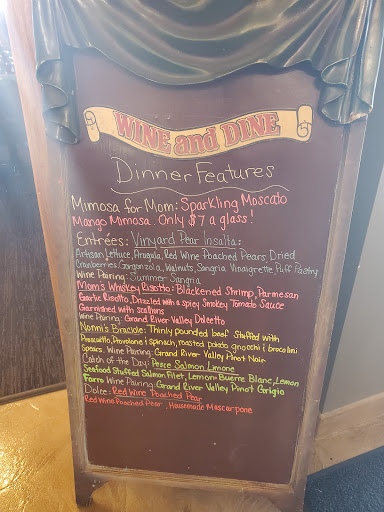 WINE and DINE
Dinner Features
Mimosa for Mom: Sparkling Moscato
Mango Mimosa. Only $7 a glass!
Entrées: Vinyard Pear Insalta:
Artisan Lettuce, Arugula, Red Wine Poached Pears, Dried
Cranberries, Gorgonzola, Walnuts, Sangria Vinaigrette, Puff Pastry
Wine Pairing: Summer Sangria
Mom's Whiskey Risotto: Blackened Shrimp, Parmesan
Garlic Risotto, Drizzled with a spicy Smokey Tomato Sauce
Garnished with scallions
Wine Pairing: Grand River Valley Dolcetto
Nonni's Braciole: Thinly pounded beef Stuffed with
Prosciutto, Provolone & spinach, roasted potato gnocchi & brocolini
Spears. Wine Pairing: Grand River Valley Pinot Noir
Catch of the Day: Pesce Salmon Limone
Seafood Stuffed Salmon Filet, Lemon Buerre Blanc, Lemon
Farro Wine Pairing: Grand River Valley Pinot Grigio
Dolce: Red Wine Poached Pear
Red Wine Poached Pear, Housemade Mascarpone